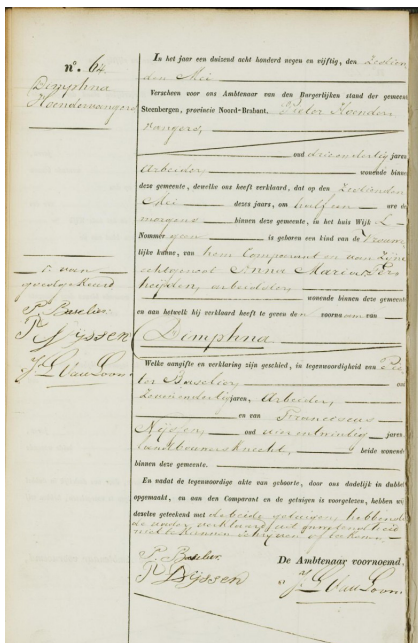 n°. 64.
Dimphna
Hoendervangers
5. van
goedgekeurd
P. Baselier
Nijssen
Van Loon
In het jaar een duizend acht honderd negen en vijftig, den Zestien
den Mei
Verscheen voor ons Ambtenaar van den Burgerlijken stand der gemeente
Steenbergen, provincie Noord-Brabant, Pieter Hoender
vangers,
oud drieendertig jaren
Arbeider, wonende binnen
deze gemeente, dewelke ons heeft verklaard, dat op den Zestienden
Mei dezes jaars, om half een ure des
morgens binnen deze gemeente, in het huis Wijk L
Nommer geen is geboren een kind van de Vrouwe
lijke kunne, van hem Comparant en van zijne
echtgenoot Anna Maria
heijden, arbeidster,
wonende binnen deze gemeente
en aan hetwelk hij verklaard heeft te geven den voornaam van
Dimphna
Welke aangifte en verklaring zijn geschied, in tegenwoordigheid van Pie
ter Baselier, oud
jaren, Arbeider,
en van Franciscus
Nijssen, oud jaren
landbouwersknecht, beide wonende
binnen deze gemeente.
En nadat de tegenwoordige akte van geboorte, door ons dadelijk in dubbel
opgemaakt, en aan den Comparant en de getuigen is voorgelezen, hebben wij
dezelve geteekend met de beide getuigen, hebbende
de vader verklaard uit onkunde
niet te kunnen schrijven of
P. Baselier
Nijssen
De Ambtenaar voornoemd,
Van Loon